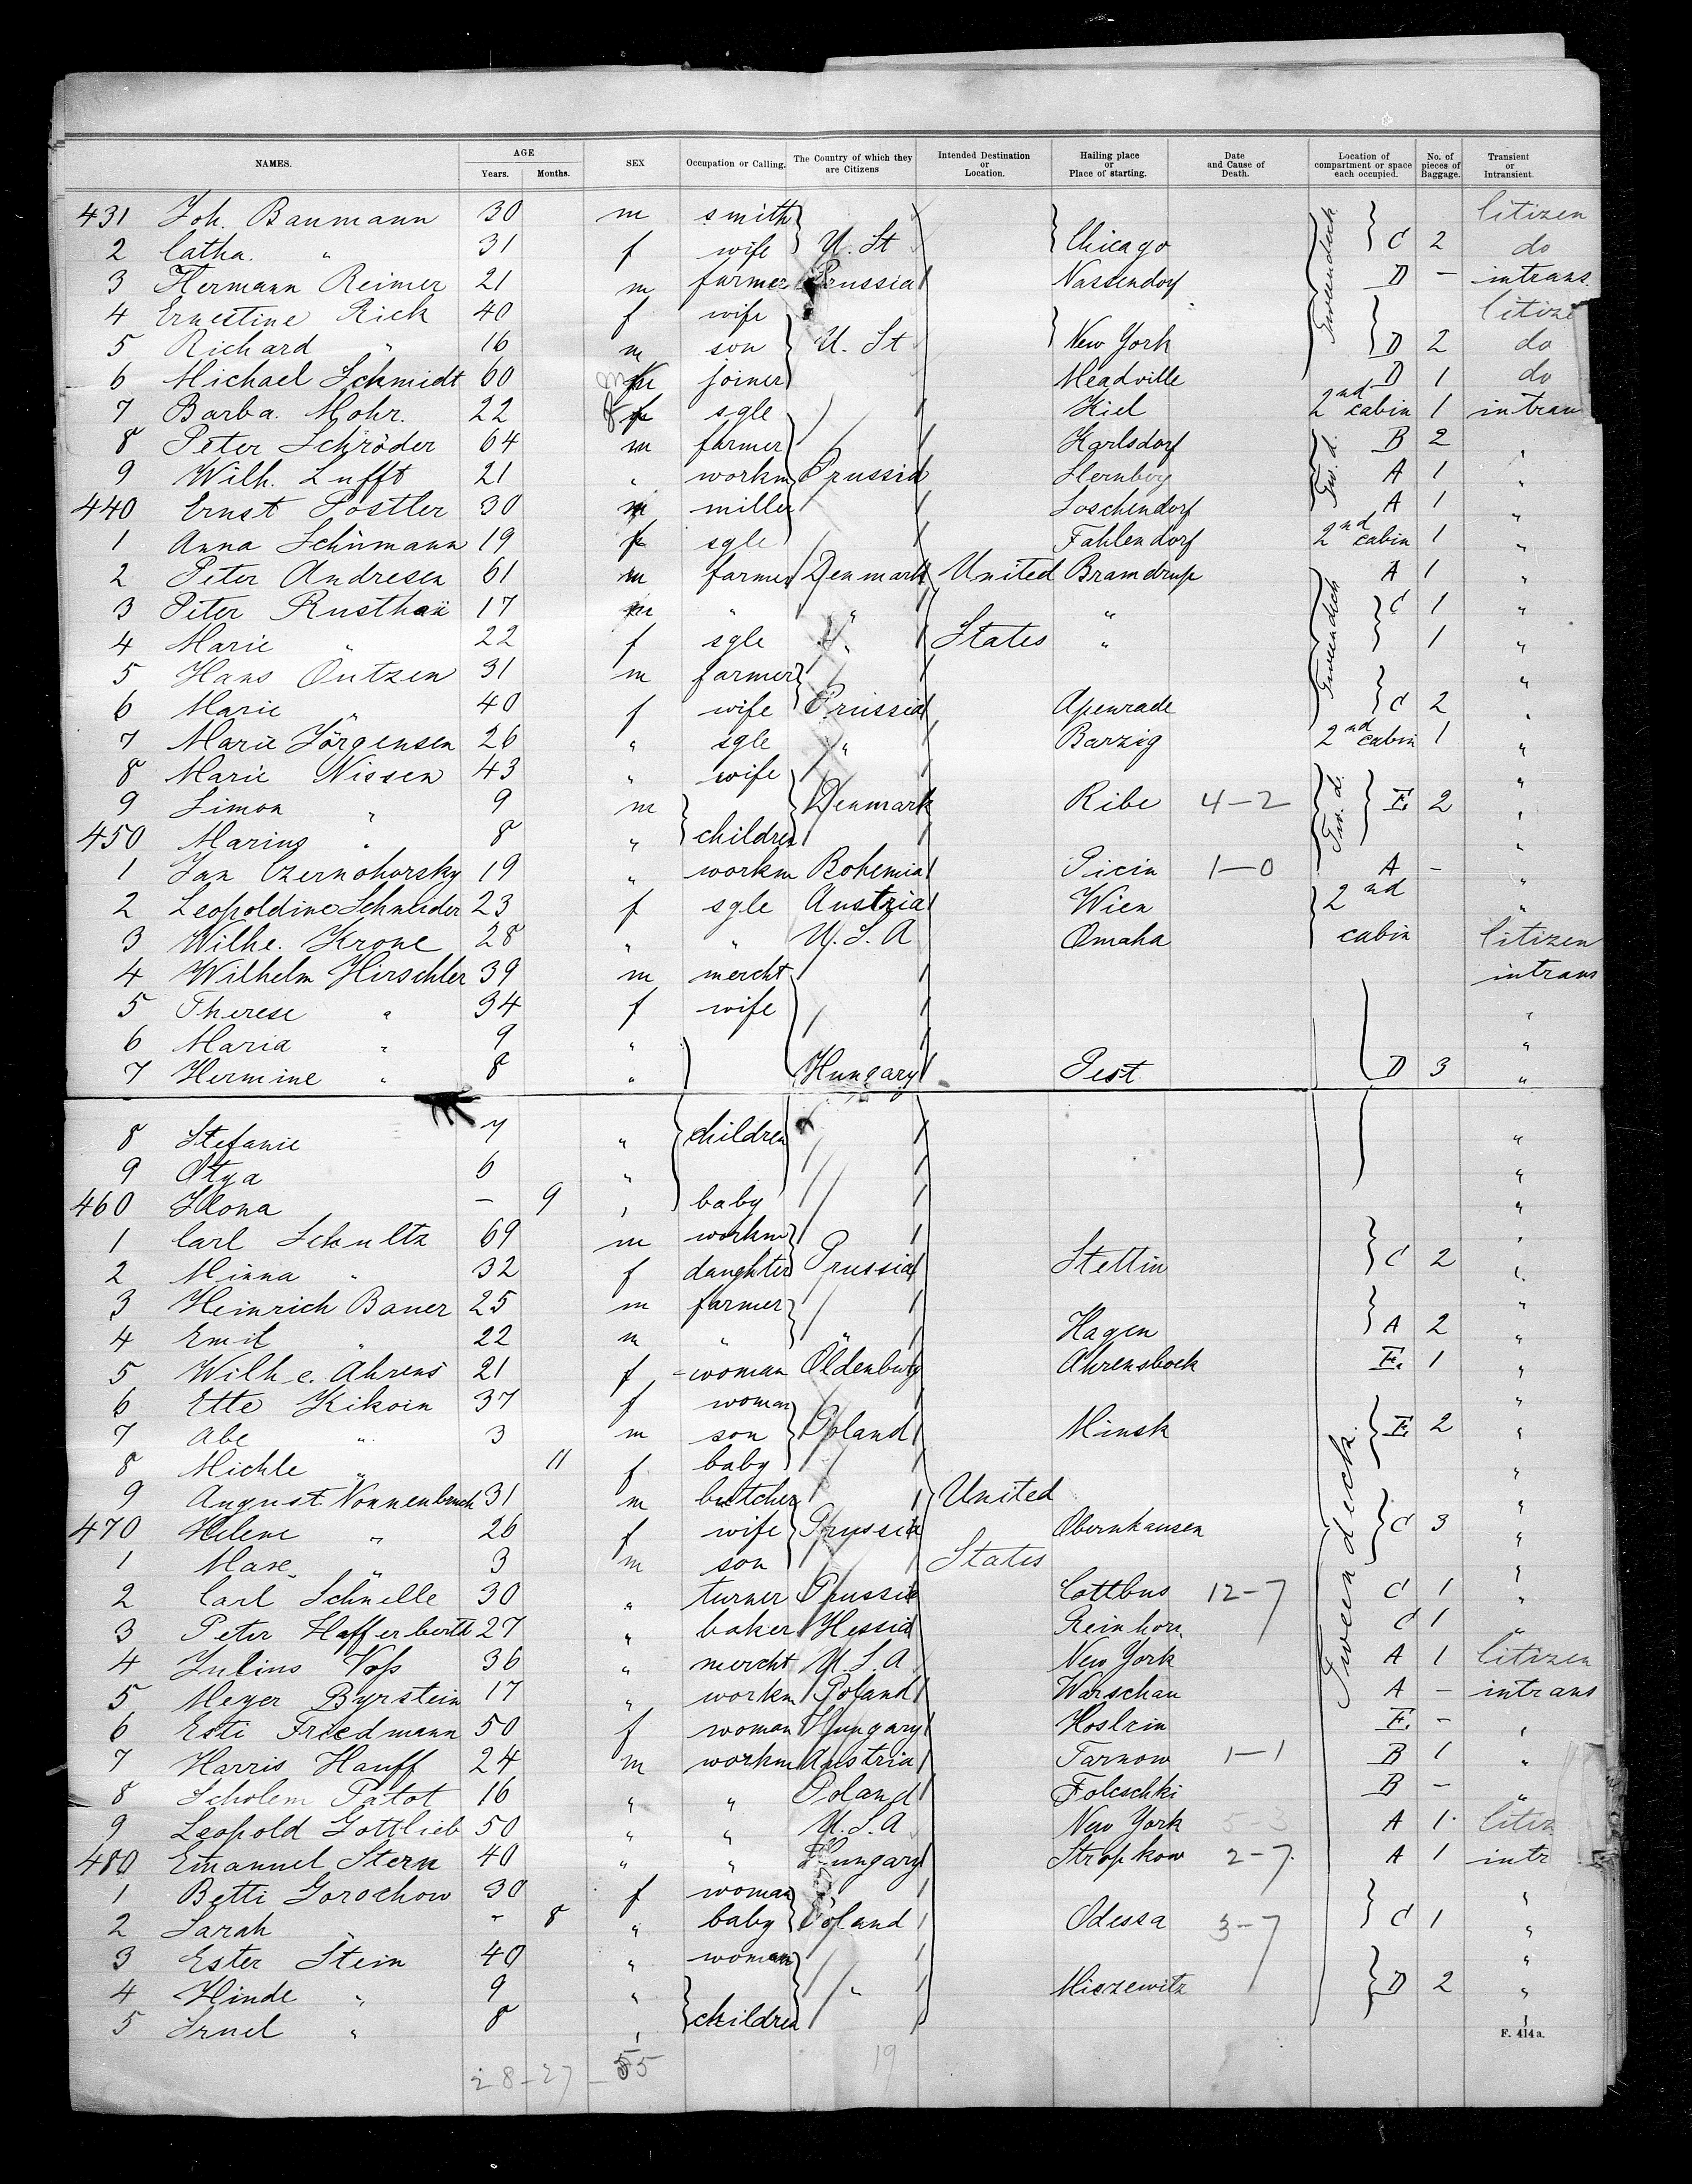 NAMES. AGE Years. Months. SEX Occupation or Calling. The Country of which they are Citizens Intended Destination or Location. Hailing place or Place of starting. Date and Cause of Death. Location of compartment or space each occupied. No. of pieces of Baggage. Transient or Intransient.
431 Joh. Baumann 30 m smith Citizen
2 Catha. " 31 f wife U. St Chicago C 2 do
3 Hermann Reimer 21 m farmer Prussia Nassendorf D - intrans
4 Ernestine Rick 40 f wife Citize
5 Richard " 16 m son U. St New York D 2 do
6 Michael Schmidt 60 m joiner Meadville D 1 do
7 Barba. Mohr. 22 f sgle Kiel 2nd cabin 1 intran
8 Peter Schröder 64 m farmer Karlsdorf B 2 "
9 Wilh. Lufft 21 " workm Prussia Hernberg A 1 "
440 Ernst Postler 30 m miller Loschendorf A 1 "
1 Anna Schümann 19 f sgle Fahlendorf 2nd cabin 1 "
2 Peter Andresen 61 m farmer Denmark United Bramdrup A 1 "
3 Peter Rusthaü 17 m " " " C 1 "
4 Marie " 22 f sgle " States " 1 "
5 Hans Outzen 31 m farmer "
6 Marie " 40 f wife Prussia Apenrade C 2 "
7 Marie Jörgensen 26 " sgle " Barzig 2nd cabin 1 "
8 Marie Nissen 43 " wife "
9 Simon " 9 m Denmark Ribe 4-2 E. 2 "
450 Marius " 8 " children "
1 Jan Czernohorsky 19 " workm Bohemia Picin 1-0 A - "
2 Leopoldine Schneider 23 f sgle Austria Wien 2nd "
3 Wilhe. Krone 28 " " U.S.A Omaha cabin Citizen
4 Wilhelm Hirschler 39 m mercht intrans
5 Therese " 34 f wife "
6 Maria " 9 " "
7 Hermine " 8 " Hungary Pest D 3 "
8 Stefanie 7 " children "
9 Otga 6 " "
460 Ilona - 9 " baby "
1 Carl Schultz 69 m workm "
2 Minna " 32 f daughter Prussia Stettin C 2 "
3 Heinrich Bauer 25 m farmer "
4 Emil " 22 m " " Hagen A 2 "
5 Wilhe. Ahrens 21 f -woman Oldenburg Ahrensboek E. 1 "
6 Ette Kikoin 37 f woman "
7 Abe " 3 m son Poland Minsk E. 2 "
8 Michle " 11 f baby "
9 August Nonnenbruch 31 m butcher United "
470 Helene " 26 f wife Prussia Obernhausen C 3 "
1 Max " 3 m son States "
2 Carl Schnelle 30 " turner Prussia Cottbus 12-7 C 1 "
3 Peter Hafferberth 27 " baker Hessia Reinhorn C 1 "
4 Julius Voss 36 " mercht U.S.A New York A 1 Citizen
5 Meyer Byrstein 17 " workm Poland Warschau A - intrans
6 Esti Friedmann 50 f woman Hungary Koslein E. - "
7 Harris Hauff 24 m workm Austria Tarnow 1-1 B 1 "
8 Scholem Patot 16 " " Poland Foleschki B - "
9 Leopold Gottlieb 50 " " U.S.A New York 5-3 A 1 Citiz
480 Emanuel Stern 40 " " Hungary Stropkow 2-7 A 1 intr
1 Betti Gorochow 30 f woman "
2 Sarah " - 8 " baby Poland Odessa 3-7 C 1 "
3 Ester Stein 40 " woman "
4 Hinde " 9 " " Miezewitz D 2 "
5 Sruel " 8 " children "
Tweendeck
Tw. d.
Tweendeck
Tw. d.
Tweendeck
F. 414 a.
28-27-55 19